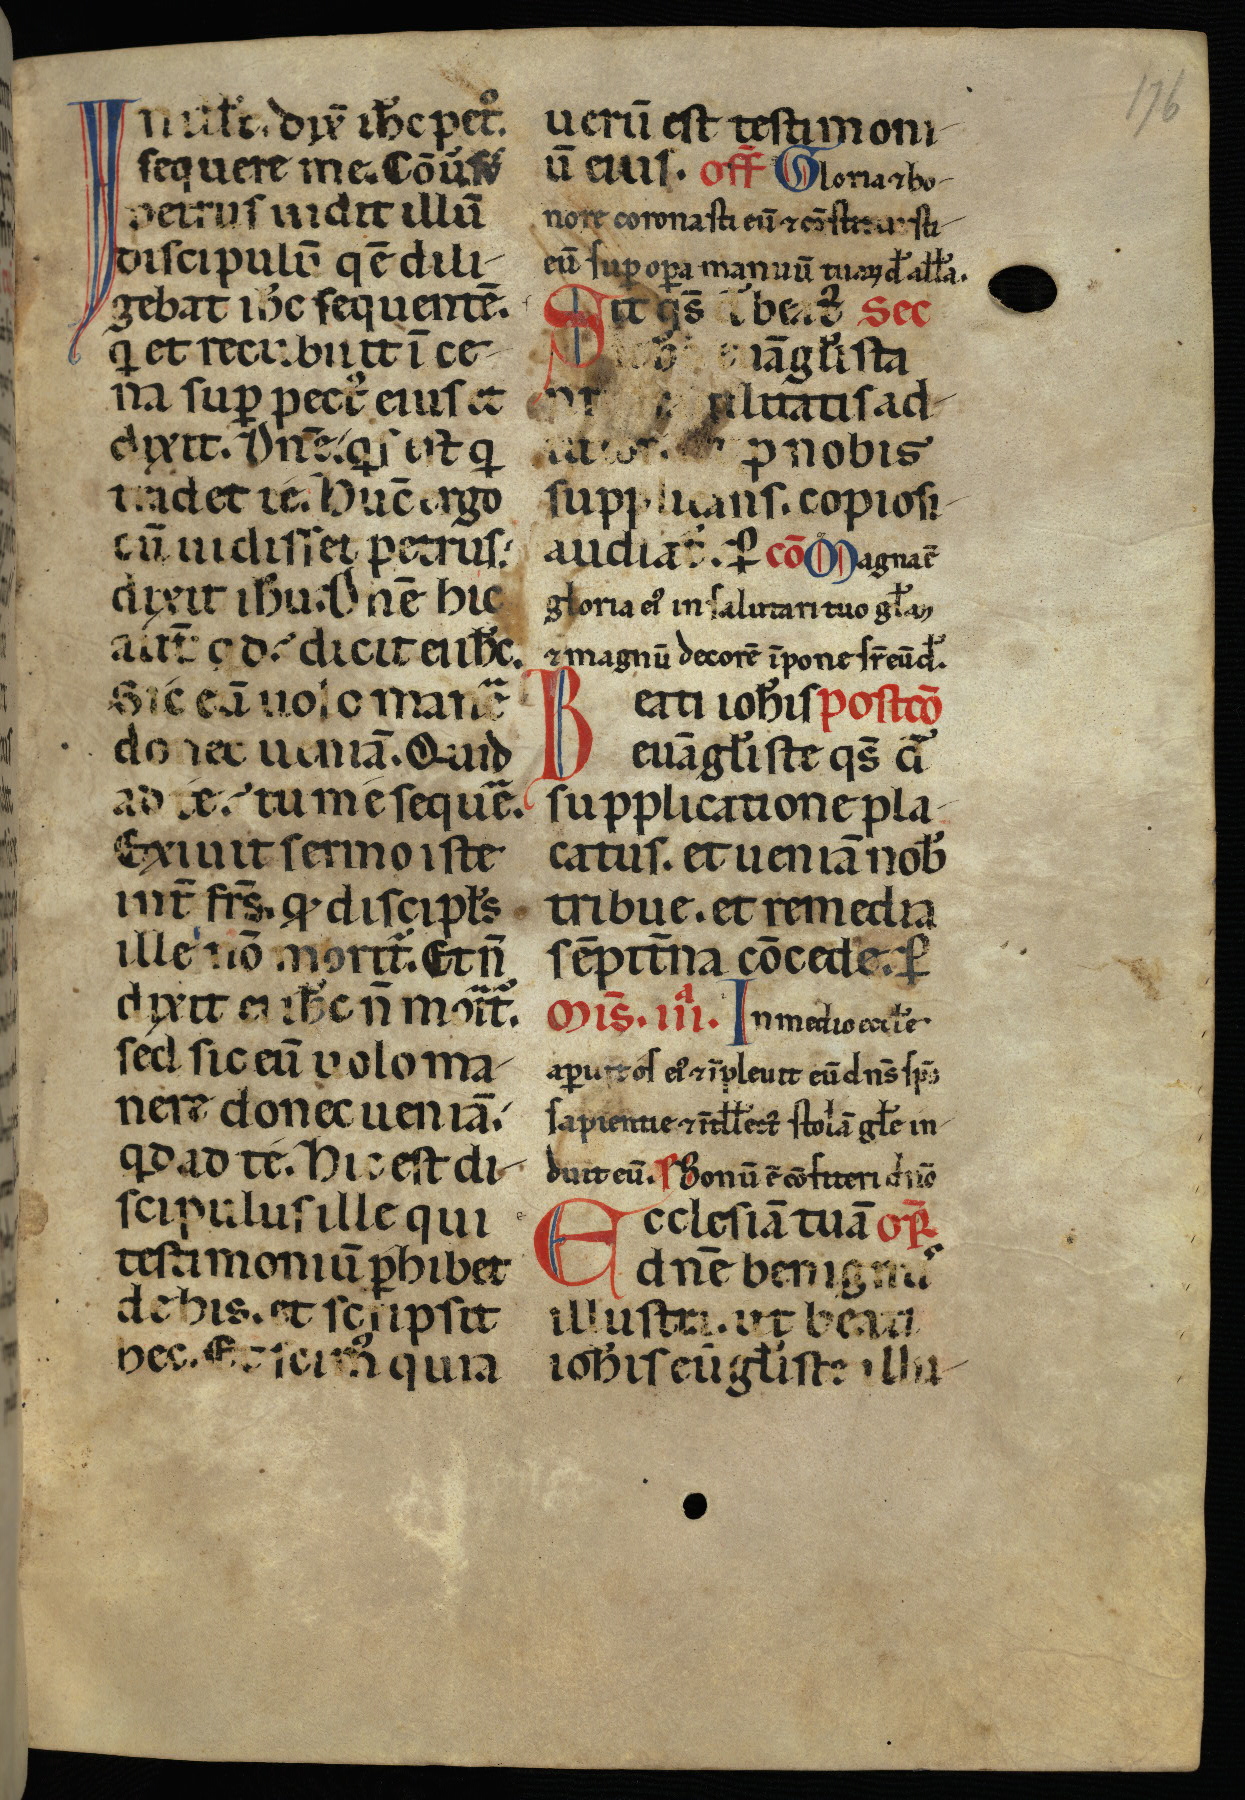 176
In illo t. dix̄ ih̄c pet̉.
sequere me. Cōu̓sus
petrus uidit illū
discipulū quē dili-
gebat ih̄c sequentē.
q̇ et recubuit ī ce-
na sup̱ pect̉ eius et
dixit. Dn̄e. qͥs est qͥ
tradet te. Hūc ergo
cū uidisset petrus:
dixit ih̄u. Dn̄e hic
aut̄ qͥd? dicit ei ih̄c.
Sic eū uolo manēͬ
donec ueniā. Quid
ad te? tu me sequēͬ.
Exiuit sermo iste
int̄ fr̄s. qͥ discipl̄s
ille nō morit̉. Et n̄
dixit ei ih̄c n̄ morit̉.
sed sic eū uolo ma-
nere donec ueniā.
qͥd ad te. Hic est di-
scipulus ille qui
testimoniū p̱hibet
de his. et scripsit
hec. Et scim̉ quia
uerū est testimoni-
ū eius. off̄ Gloria ⁊ ho-
nore coronasti eū ⁊ cōstituisti
eū sup̱ op̱a manuū tuaꝝ d̄ all̄a.
Sit qs̄ beat̉ Sec
euāgl̄ista
ad-
p nobis
supplicans. copiosi-
audiat̉. p̱ cō Magna ē
gloria eỉ in salutari tuo gl̄aꝫ
⁊ magnū decorē īpone sr̄ eū d̄.
Beati ioh̄is postcō
euāgl̄iste qs̄ dn̄e
supplicatione pla-
catus. et ueniā nob̄
tribue. et remedia
sēpit̄na cōcede. p̱
Mis̄. iiiͣ. In medio eccl̄e
ap̱uit os eỉ ⁊ īpleuit eū dn̄s sp̄ū
sapientie ⁊ ītll̄ect̉ stolā gl̄e in-
duit eū. p̄s Bonū ē cōfiteri dn̄o
Ecclesiā tuā oR̄
dn̄e benignus
illustra. ut beati
ioh̄is eūgl̄iste illu-